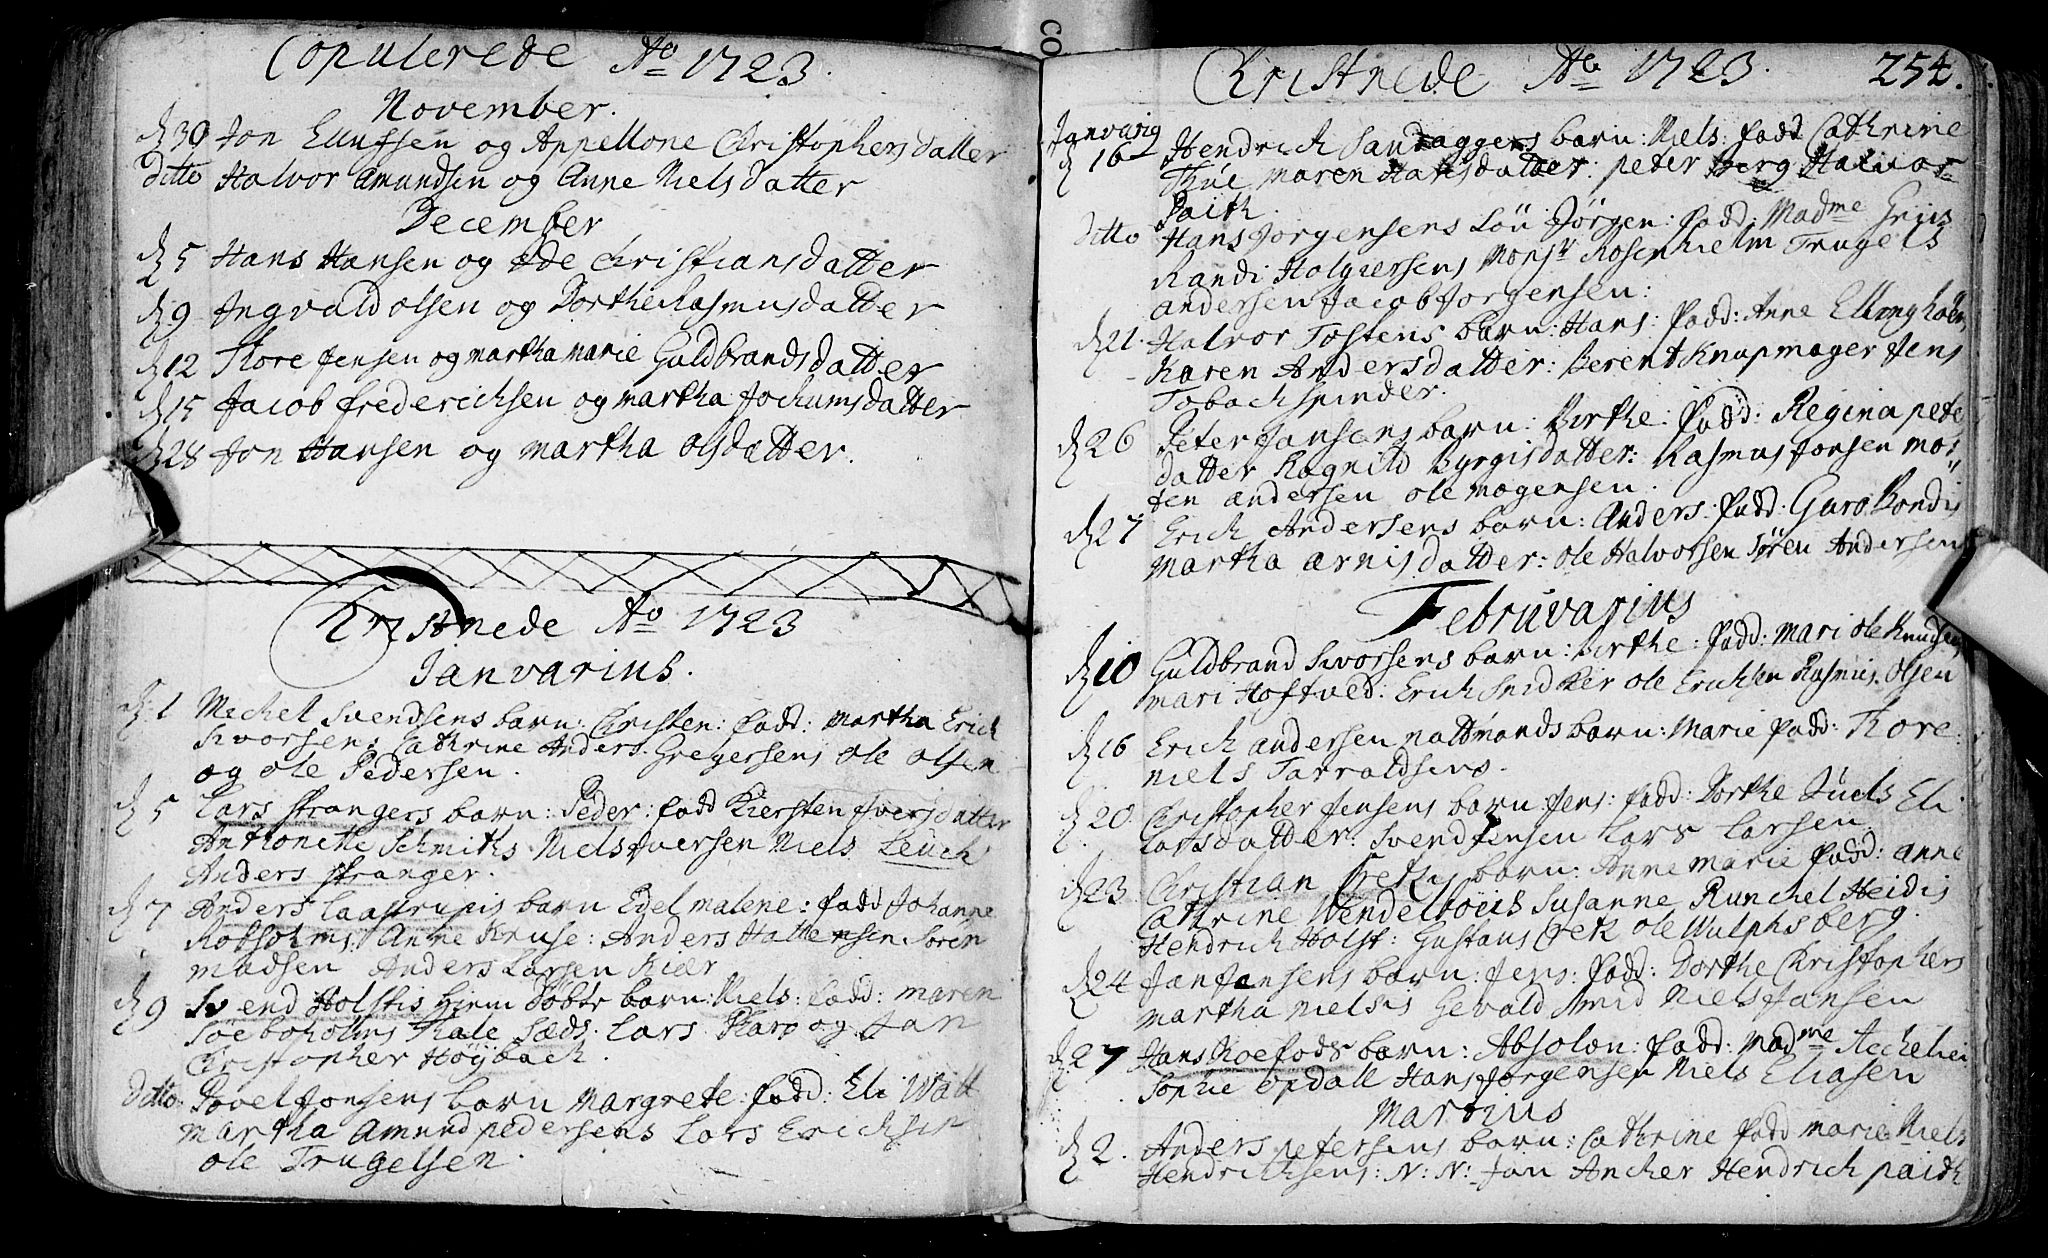 Copulerede Ao 1723.
November.
d 30 Jon Ellufsen og Appellone Christophersdatter
ditto Halvor Amundsen og Anne Nielsdatter
December
d 5 Hans Hansen og Ede Christiansdatter
d 9 Ingvald olsen og Dorthe Rasmusdatter
d 12 Thore Jensen og martha marie Guldbrandsdatter
d 15 Jacob frederichsen og martha Jochumsdatter
d 28 Jon Hansen og martha olsdatter.
Cristnede Ao 1723
Janvarius.
d. 1 Michel Svendsens barn: Christen: fadd: martha Erich
Sivorsens Cathrine Anders Gregersens ole olsen
og ole Pedersen.
d 5 Lars strangers barn: Peder: fadd Kiersten Iversdatter
Anthonette Schmiths Niels Iversen Niels Leuch
Anders stranger.
d 7 Anders Laastrupis barn Edel malene: fadd Johanne
Robsohms Anne Kruse: Anders Hattensen Søren
madsen Anders Larsen Kiær
d 9 Svend Holstis barn: Niels: fadd: maren
Søeboholms Thale Sæds. Lars og Jan
Christopher Høybach.
Ditto Povel Jonsens barn margrete: fadd: Eli Watt
martha Amund pedersens Lars Erichsen
ole Trugelsen.
Christnede Ao 1723. 254.
Janvarig
d 16 Hendrich Sandaggers barn: Niels. fadd Cathrine
Thue maren Hansdatter: peter Berg Halvor
Paith.
ditto Hans Jorgensens Søn Jørgen: fadd: Madme Griis
Randi Holgiersens Monsr Rosenhielm Trugels
andersen Jacob Jorgensen:
d 21. Halvor Tostens barn: Hans: fadd: Anne Ellingholm
Karen Andersdatter: Berent Knapmager Jens
Tobachspinder.
d 26 Peter Jansens barn: Birthe: fadd: Regina pete
datter Ragnild Byrgisdatter: Rasmus Jonsen mor
ten andersen ole mogensen.
d 27 Erich Andersens barn: Anders: fadd: Guro Bondis
martha arnisdatter: ole Halvorsen Søren Andersen
Februvarius
d 10 Guldbrand Sivorsens barn: Birthe: fadd: mari ole Knudsens
mari Hoftved: Erich Snidker ole Erichsen Rasmus olsen
d 16 Erich andersen nattmands barn: Marie fadd: Thore
niels Tarraldsens.
d 20. Christopher Jensens barn Jens: fadd: Dorthe Juels Eli
Larsdatter: Svend Jensen Lars Larsen
d 23. Christian Crekis barn: Anne marie fadd: anne
Cathrine Wendelboeis Susanne Runchel Heidis
Hendrich Holst: Gustaus Crek ole Wulphsberg.
d 24 Jan Jansens barn: Jens: fadd: Dorthe Christophers
martha nielsis Gevald Smid Niels Jansen
d 27 Hans Koefods barn: Absolon: fadd: Madme
Sophie opdall Hans Jørgensen Niels Eliasen
Martius
d 2. Anders petersens barn: Cathrine fadd marie Niels
Hendrichsens: N: N: Jan Ancher Hendrich paith